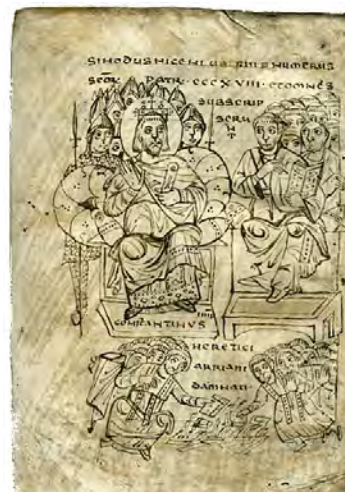 SINODUS NICENI UBI ERANT NUMERUS
SCŌR PATR CCCXVIII ET OMNES
SUBSCRIP
SERU
NT
CONSTANTINUS
IMP
HERETICI
ARRIANI
DAMNATI